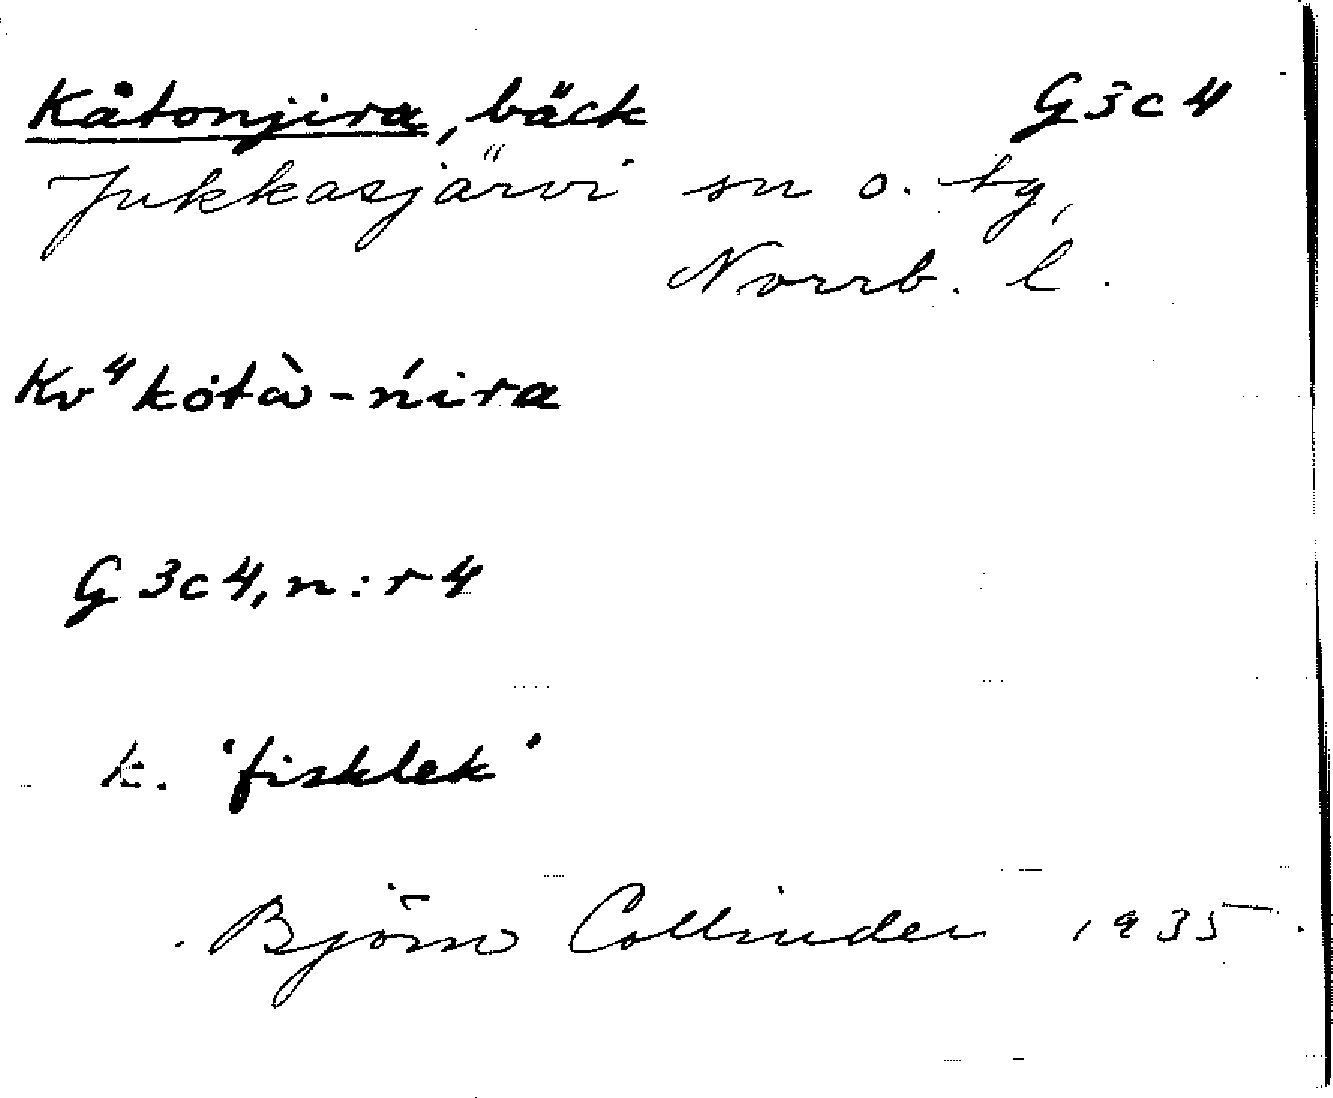 Kåtonjira, bäck G3c4
Jukkasjärvi sn o. tg,
Norrb. l.
Kv⁴ kȯtὼ-ńira
G3c4, n:r 4
k. 'fisklek'
Björn Collinder 1935.